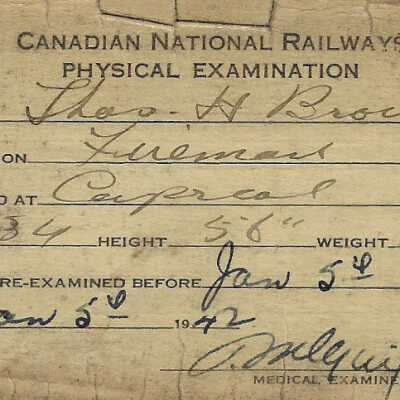 CANADIAN NATIONAL RAILWAYS
PHYSICAL EXAMINATION
Thos. H Brow
ON Fireman
D AT Capreol
34 HEIGHT 5'6" WEIGHT
RE-EXAMINED BEFORE Jan 5th
an 5th 1942
MEDICAL EXAMINE